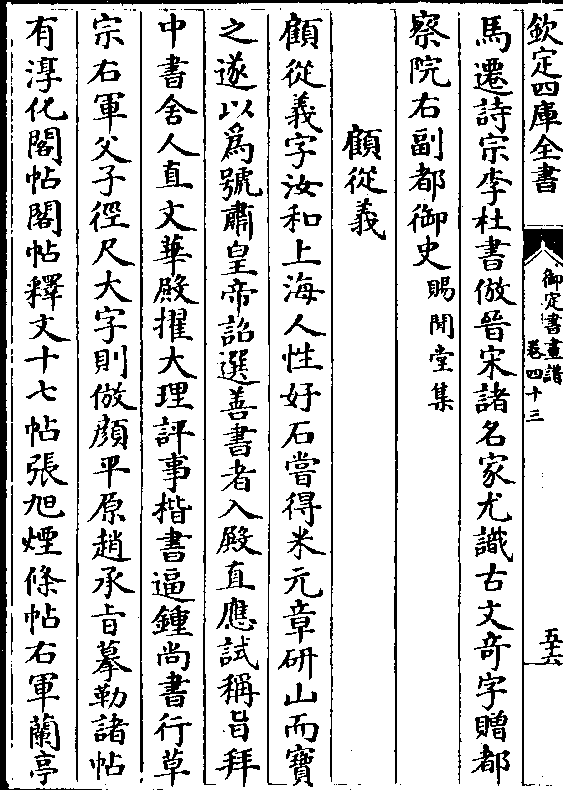 欽定四庫全書
御定書畫譜
卷四十三
五十六
馬遷詩宗李杜書倣晉宋諸名家尤識古文竒字贈都
察院右副都御史賜閒堂集
顧從義
顧從義字汝和上海人性好石嘗得米元章研山而寳
之遂以為號肅皇帝詔選善書者入殿直應試稱㫖拜
中書舍人直文華殿擢大理評事楷書逼鍾尚書行草
宗右軍父子徑尺大字則倣顔平原趙承㫖摹勒諸帖
有淳化閣帖閣帖釋文十七帖張旭煙條帖右軍蘭亭